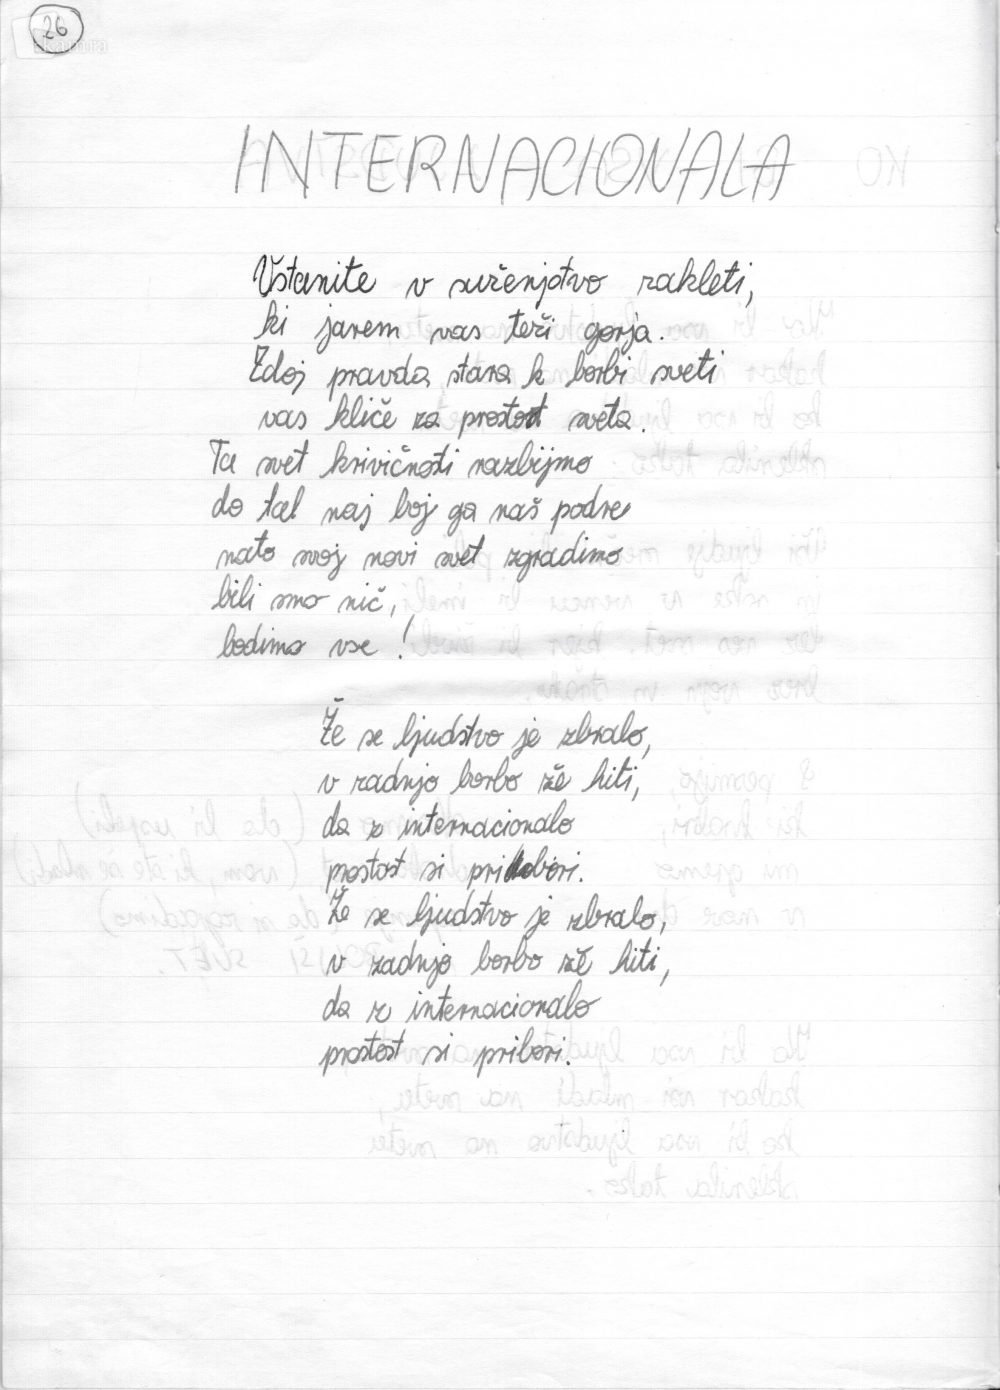 26
INTERNACIONALA
Vstanite v suženjstvo zakleti,
ki jarem vas teži gorja.
Zdoj pravda stara k borbi sveti
vas kliče za prostost sveta.
Ta svet krivičnosti razbijmo
do tal naj boj ga naš podre
nato svoj novi svet zgradimo
bili smo nič,
bodimo vse!
Že se ljudstvo je zbralo,
v zadnjo borbo že hiti,
da z internacionalo
prostost si pribori.
Že se ljudstvo je zbralo,
v zadnjo borbo že hiti,
da z internacionalo
prostost si pribori.